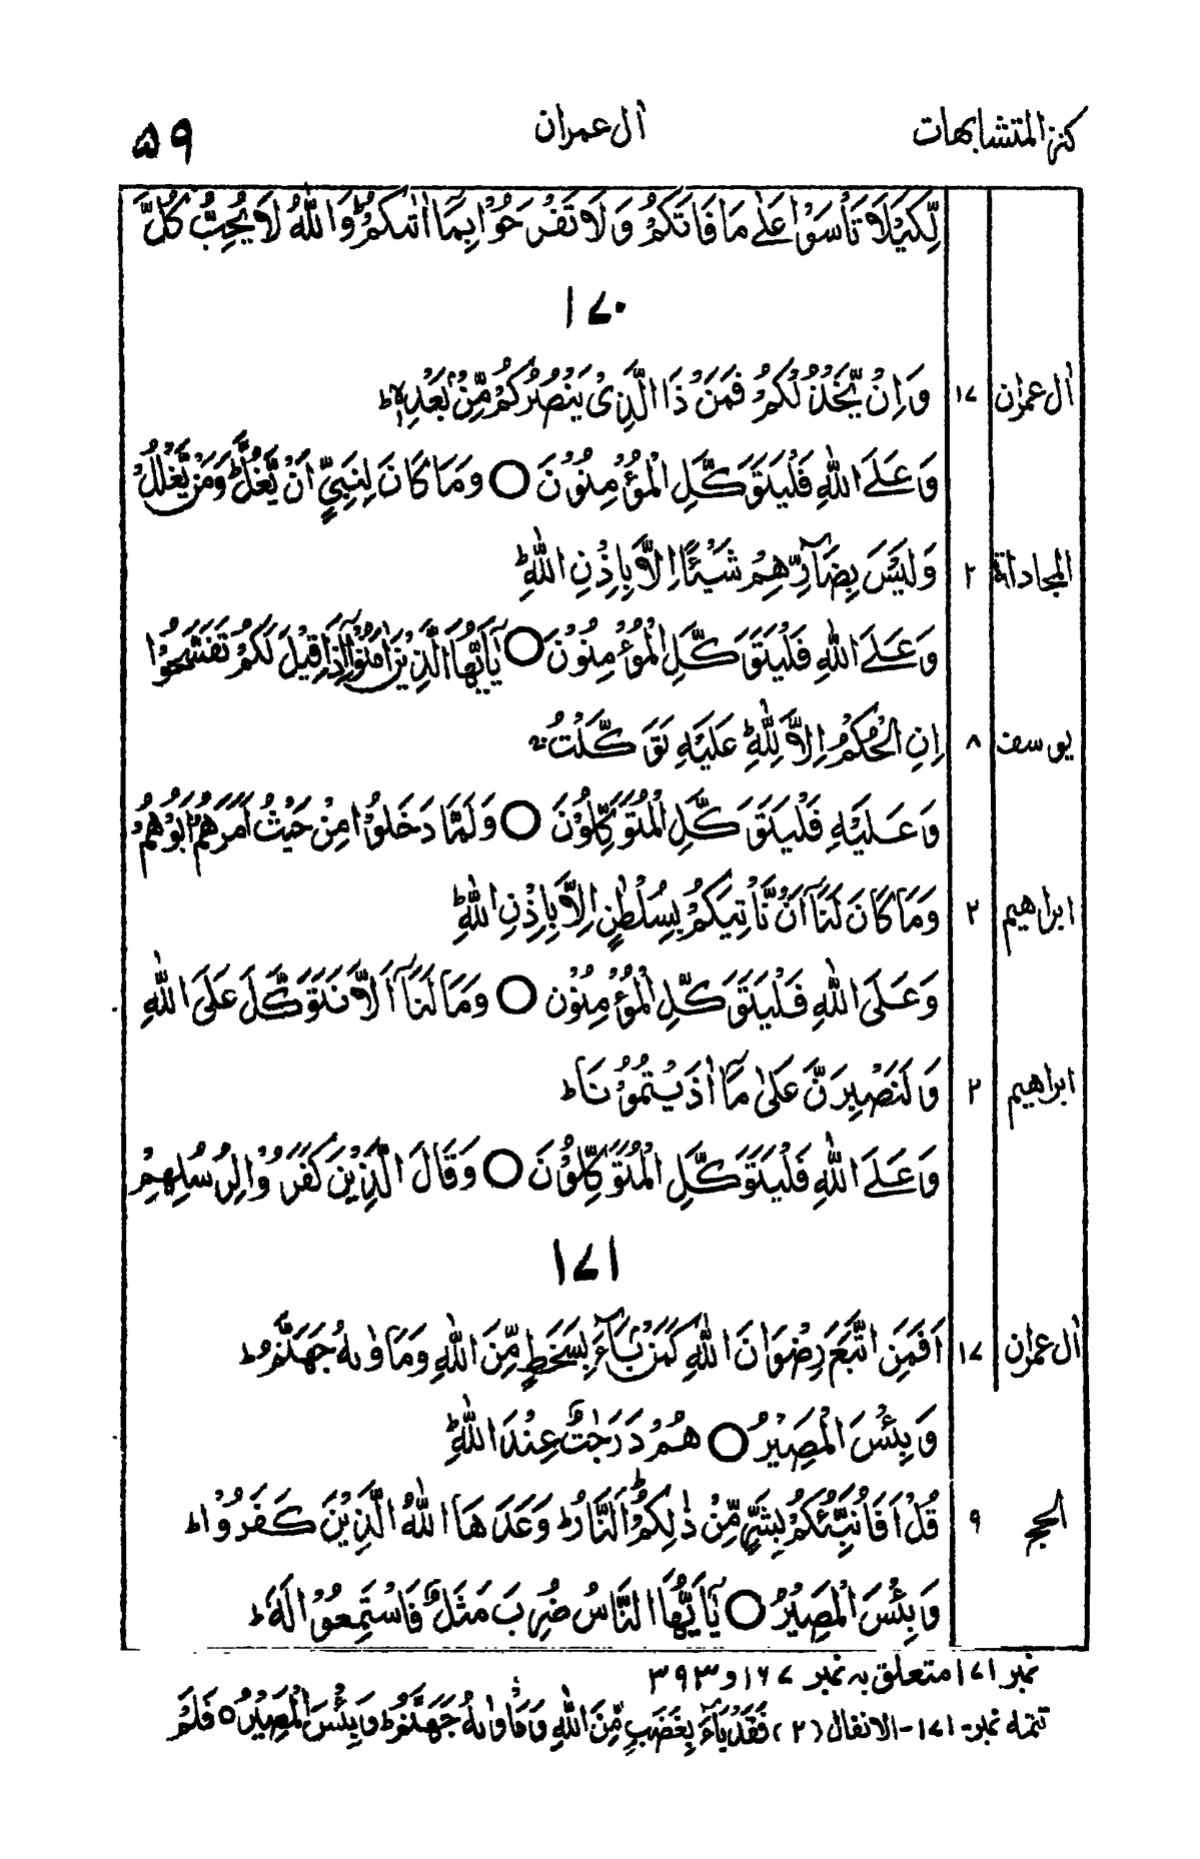 كنز المتشابهات
اٰل عمران
۵۹
لِّكَيْلَا تَأْسَوْا عَلٰى مَا فَاتَكُمْ وَلَا تَفْرَحُوْا بِمَآ اٰتٰىكُمْ ؕ وَاللّٰهُ لَا يُحِبُّ كُلَّ
۱۷۰
اٰل عمران ۱۷ وَاِنْ يَّخْذُلْكُمْ فَمَنْ ذَا الَّذِىْ يَنْصُرُكُمْ مِّنْۢ بَعْدِهٖ ؕ
وَعَلَى اللّٰهِ فَلْيَتَوَكَّلِ الْمُؤْمِنُوْنَ ○ وَمَا كَانَ لِنَبِيٍّ اَنْ يَّغُلَّ ؕ وَمَنْ يَّغْلُلْ
المجادلة ۲ وَلَيْسَ بِضَآرِّهِمْ شَيْئًا اِلَّا بِاِذْنِ اللّٰهِ ؕ
وَعَلَى اللّٰهِ فَلْيَتَوَكَّلِ الْمُؤْمِنُوْنَ ○ يٰٓاَيُّهَا الَّذِيْنَ اٰمَنُوْٓا اِذَا قِيْلَ لَكُمْ تَفَسَّحُوْا
يوسف ۸ اِنِ الْحُكْمُ اِلَّا لِلّٰهِ ؕ عَلَيْهِ تَوَكَّلْتُ ۚ
وَعَلَيْهِ فَلْيَتَوَكَّلِ الْمُتَوَكِّلُوْنَ ○ وَلَمَّا دَخَلُوْا مِنْ حَيْثُ اَمَرَهُمْ اَبُوْهُمْ
ابراهيم ۲ وَمَا كَانَ لَنَآ اَنْ نَّأْتِيَكُمْ بِسُلْطٰنٍ اِلَّا بِاِذْنِ اللّٰهِ ؕ
وَعَلَى اللّٰهِ فَلْيَتَوَكَّلِ الْمُؤْمِنُوْنَ ○ وَمَا لَنَآ اَلَّا نَتَوَكَّلَ عَلَى اللّٰهِ
ابراهيم ۲ وَلَنَصْبِرَنَّ عَلٰى مَآ اٰذَيْتُمُوْنَا ؕ
وَعَلَى اللّٰهِ فَلْيَتَوَكَّلِ الْمُتَوَكِّلُوْنَ ○ وَقَالَ الَّذِيْنَ كَفَرُوْا لِرُسُلِهِمْ
۱۷۱
اٰل عمران ۱۷ اَفَمَنِ اتَّبَعَ رِضْوَانَ اللّٰهِ كَمَنْۢ بَآءَ بِسَخَطٍ مِّنَ اللّٰهِ وَمَأْوٰىهُ جَهَنَّمُ ؕ
وَبِئْسَ الْمَصِيْرُ ○ هُمْ دَرَجٰتٌ عِنْدَ اللّٰهِ ؕ
الحج ۹ قُلْ اَفَاُنَبِّئُكُمْ بِشَرٍّ مِّنْ ذٰلِكُمْ ؕ اَلنَّارُ ؕ وَعَدَهَا اللّٰهُ الَّذِيْنَ كَفَرُوْا ؕ
وَبِئْسَ الْمَصِيْرُ ○ يٰٓاَيُّهَا النَّاسُ ضُرِبَ مَثَلٌ فَاسْتَمِعُوْا لَهٗ ؕ
نمبر ۱۷۱ متعلق به نمبر ۱۶۷ و ۳۹۳
تتمه نمبر۔ ۱۷۱ - الانفال (۲) فَقَدْ بَآءَ بِغَضَبٍ مِّنَ اللّٰهِ وَمَأْوٰىهُ جَهَنَّمُ ؕ وَبِئْسَ الْمَصِيْرُ ○ فَلَمْ